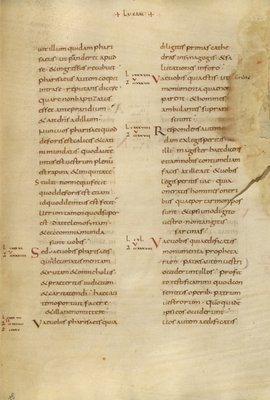 LUCAM
ut illum quidam phari
saeus ut pranderet apud
se & ingressus recubuit
pharisaeus autem coepit
intra se reputans dicere
quare non baptizatus
esset ante prandium
& ait dns ad illum
Nunc uos pharisaei quod
deforis est calicis & ca
tini mundatis quod autem
intus est uestrum plenum
est rapina & iniquitate
Stulti nonne qui fecit
quod deforis est etiam id
quod deintus est fecit
Uerum tamen quod super
est date elemosinam
& ecce omnia munda
sunt uobis
Sed uae uobis pharisaeis
qui decimatis mentam
& rutam & omne holus
& praeteritis iudicium
& caritatem di haec au
tem oportuit facere
& illa non omittere
Uae uobis pharisaeis quia
diligitis primas cathe
dras in synagogis & sa
lutationes in foro
Uae uobis quia estis ut
monumenta quae non
parent & homines
ambulantes supra ne
sciunt
Respondens autem qui
dam ex legis peritis ait
illi magister haec dicens
etiam nobis contumeliam
facis at ille ait & uobis
legis peritis uae quia
oneratis homines oneri
bus quae portari non pos
sunt & ipsi uno digito
uestro non tangitis
sarcinas
Uae uobis quia aedificatis
monumenta propheta
rum patres autem uestri
occiderunt illos profecto
testificamini quod con
sentitis operib. patrum
uestrorum quoniam
ipsi quidem eos occiderunt
uos autem aedificatis